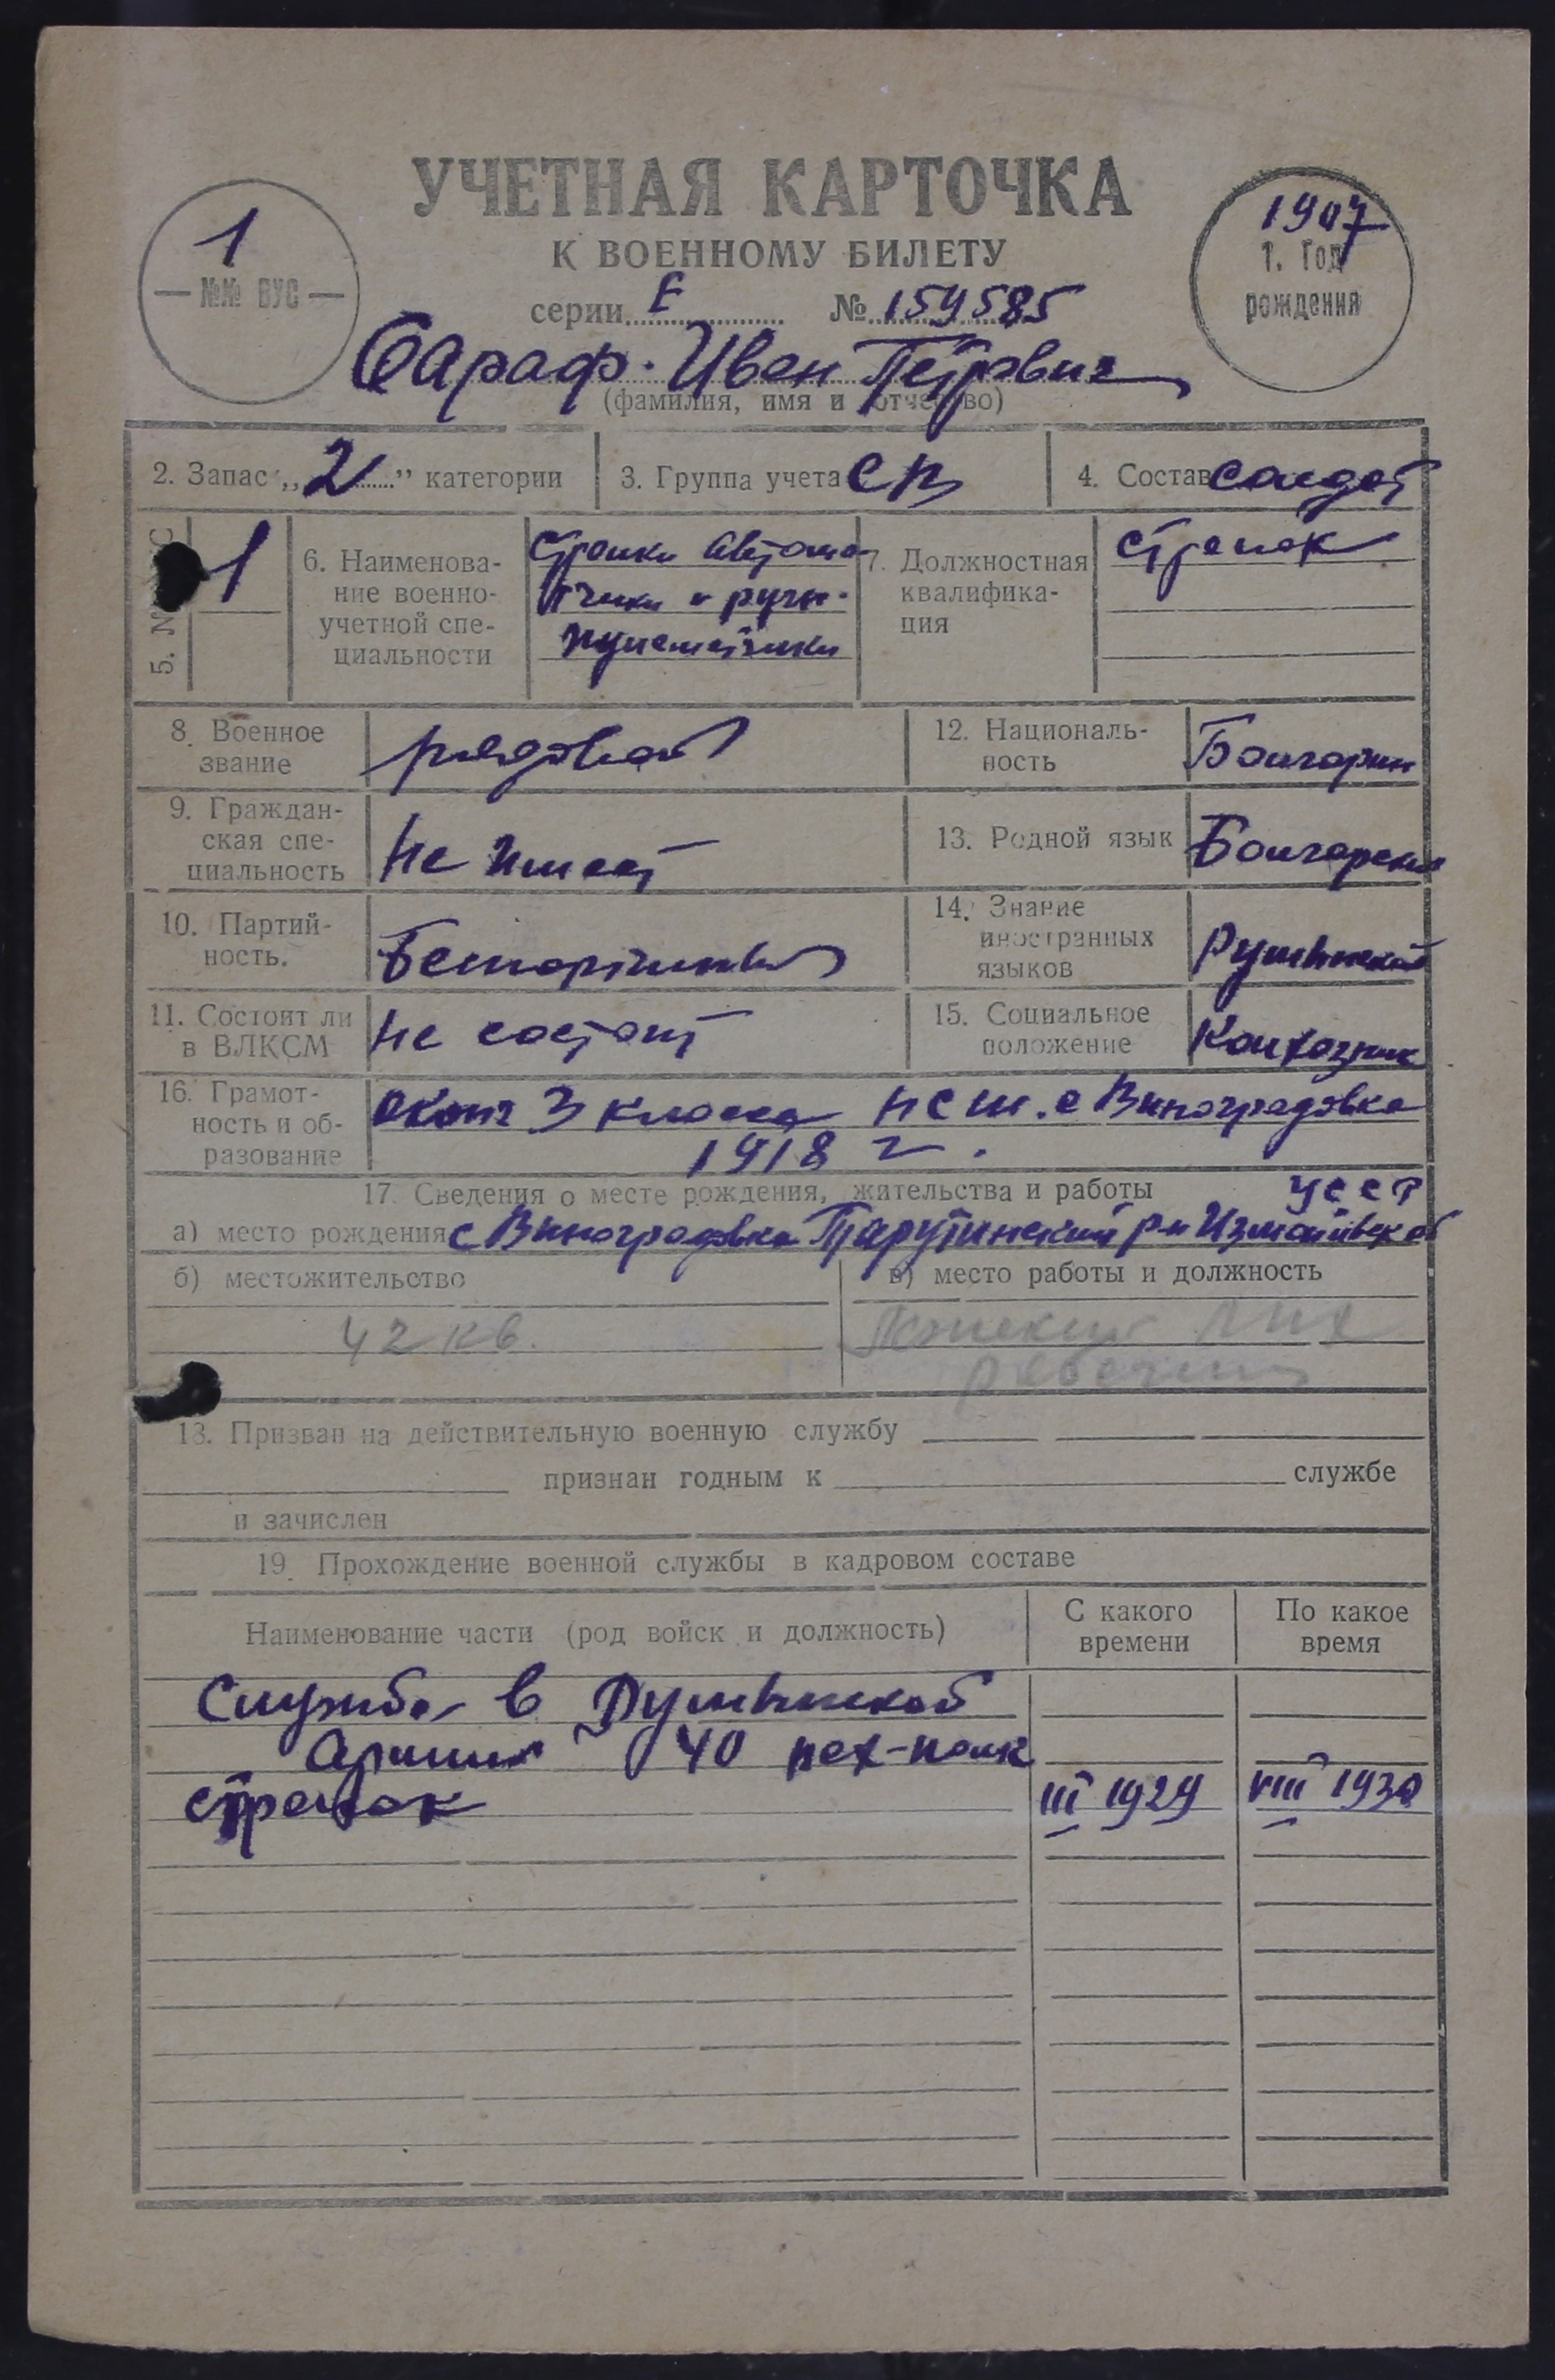 УЧЕТНАЯ КАРТОЧКА
К ВОЕННОМУ БИЛЕТУ
1
№№ ВУС
1907
1. Год
рождения
серии Е № 159585
Сараф Иван Петрович
(фамилия, имя и отчество)
2. Запас „2” категории
3. Группа учета СА
4. Состав солдат
5. №
1
6. Наименова-
ние военно-
учетной спе-
циальности
Стрелки автома-
тчики и ручн.
пулеметчики
7. Должностная
квалифика-
ция
Стрелок
8. Военное
звание
рядовой
12. Националь-
ность
Болгарин
9. Граждан-
ская спе-
циальность
Не имеет
13. Родной язык
Болгарский
10. Партий-
ность.
Беспартийный
14. Знание
иностранных
языков
Румынский
11. Состоит ли
в ВЛКСМ
Не состоит
15. Социальное
положение
Колхозник
16. Грамот-
ность и об-
разование
оконч 3 класса НСШ. с Виноградовка
1918 г.
17. Сведения о месте рождения, жительства и работы
УССР
а) место рождения с Виноградовка Тарутинский р-н Измаильской
б) местожительство
42 кв.
в) место работы и должность
рабочий
18. Призван на действительную военную службу
признан годным к службе
и зачислен
19. Прохождение военной службы в кадровом составе
Наименование части (род войск и должность)
С какого
времени
По какое
время
Служба в Румынской
Армии 40 пех-полк
стрелок III 1929 VIII 1930